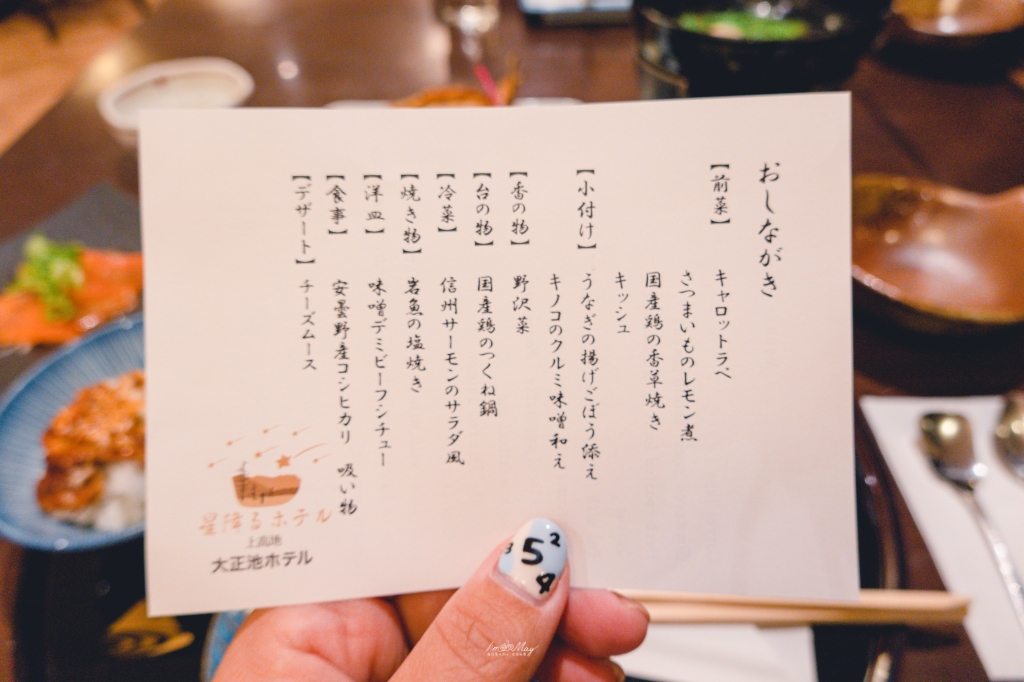 おしながき
【前菜】 キャロットラペ
さつまいものレモン煮
国産鶏の香草焼き
キッシュ
【小付け】 うなぎの揚げごぼう添え
キノコのクルミ味噌和え
【香の物】 野沢菜
【台の物】 国産鶏のつくね鍋
【冷菜】 信州サーモンのサラダ風
【焼き物】 岩魚の塩焼き
【洋皿】 味噌デミビーフシチュー
【食事】 安曇野産コシヒカリ 吸い物
【デザート】 チーズムース
星降るホテル
上高地
大正池ホテル
3 5 2